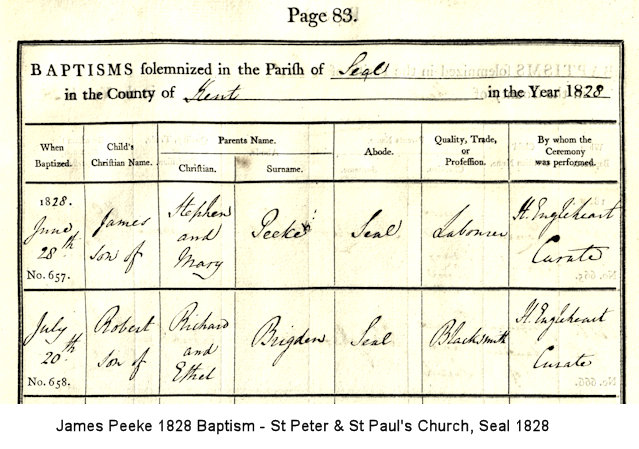 Page 83.
BAPTISMS solemnized in the Parish of Seal
in the County of Kent in the Year 1828
When Baptized.
Child's Christian Name.
Parents Name.
Christian.
Surname.
Abode.
Quality, Trade, or Profession.
By whom the Ceremony was performed.
1828.
June 28th
No. 657.
James son of
Stephen and Mary
Peeke
Seal
Labourer
H. Engleheart Curate
July 20th
No. 658.
Robert son of
Richard and Ethel
Brigden
Seal
Blacksmith
H. Engleheart Curate
James Peeke 1828 Baptism - St Peter & St Paul's Church, Seal 1828